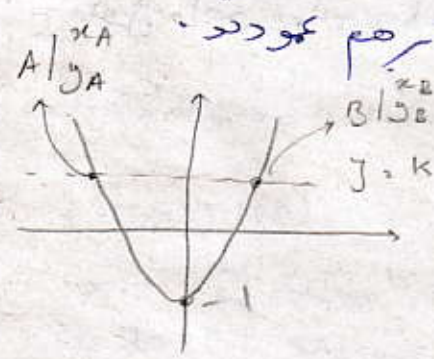 برهم عمودند.
A | xA
yA
B | xB
yB
y = K
-1